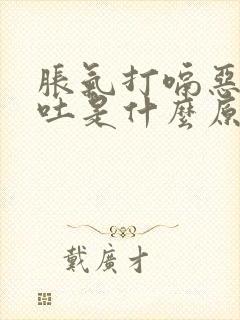 脹氣打嗝惡
吐是什麼原
戴廣才